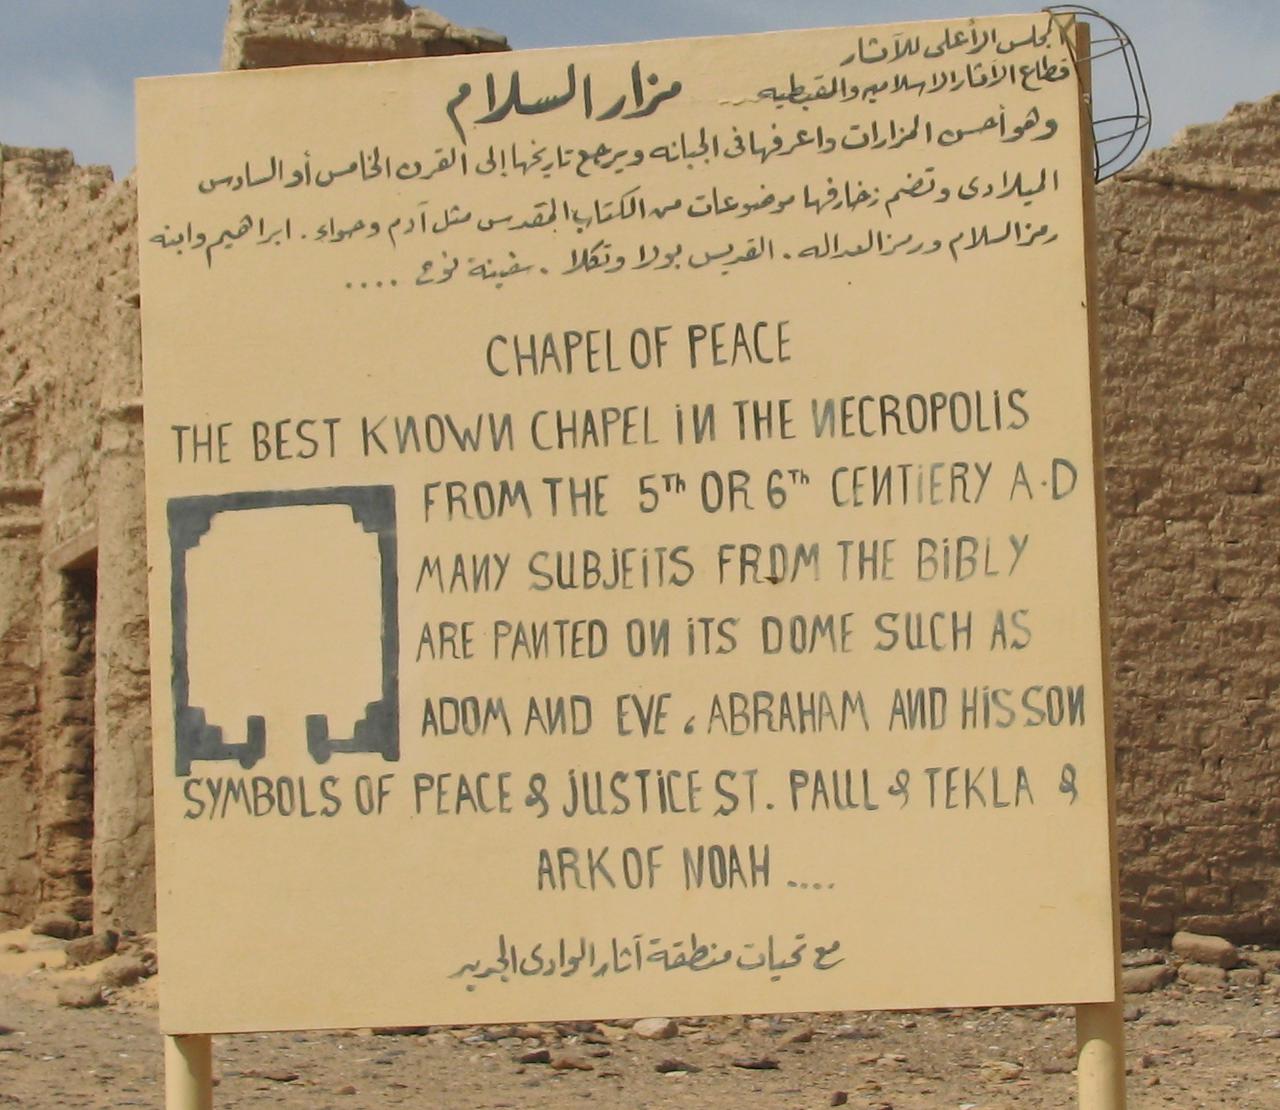 المجلس الأعلى للآثار
قطاع الآثار الاسلاميه والقبطيه
مزار السلام
وهو أحسن المزارات واعرفها فى الجبانه ويرجع تاريخها إلى القرن الخامس أو السادس
الميلادى وتضم زخارفها موضوعات من الكتاب المقدس مثل آدم وحواء . ابراهيم وابنه
رمز السلام ورمز العداله . القديس بولا وتكلا . سفينة نوح ....
CHAPEL OF PEACE
THE BEST KNOWN CHAPEL iN THE NECROPOLiS
FROM THE 5Th OR 6Th CENTiERY A.D
MANY SUBJEiTS FROM THE BiBLY
ARE PANTED ON iTS DOME SUCH AS
ADOM AND EVE ، ABRAHAM AND HiS SON
SYMBOLS OF PEACE & JUSTiCE ST. PAUL & TEKLA &
ARK OF NOAH ....
مع تحيات منطقة آثار الوادى الجديد